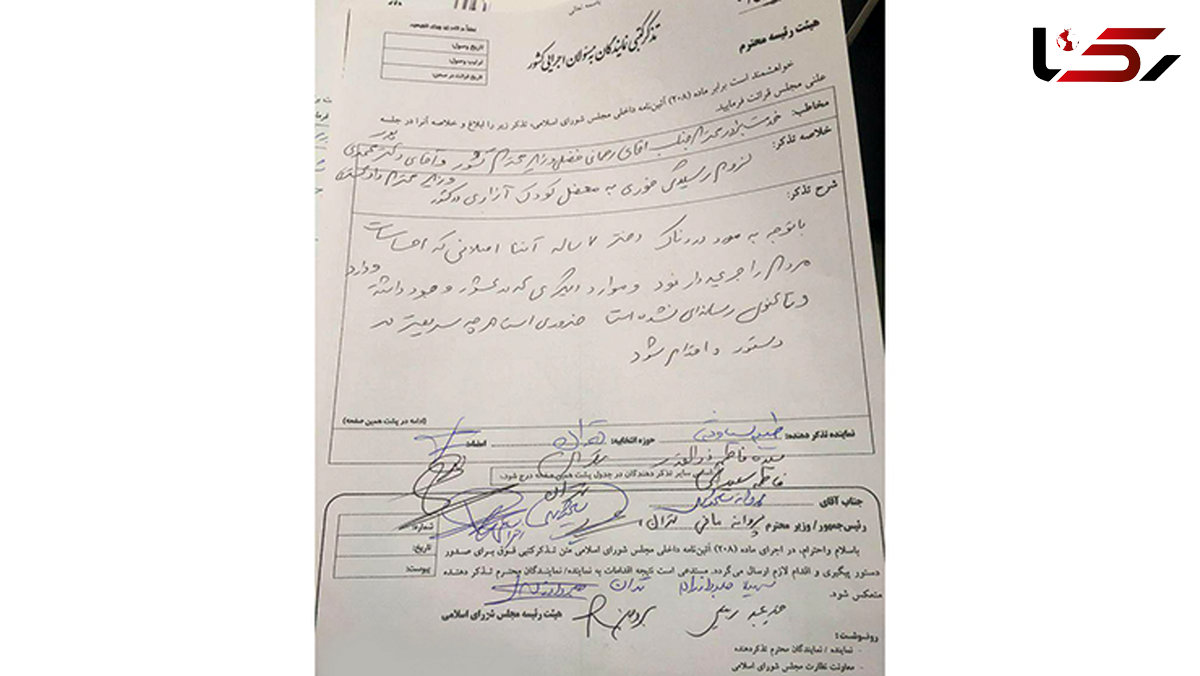 باسمه تعالی
تذکر کتبی نمایندگان به مسئولان اجرایی کشور
تاریخ وصول:
ترتیب وصول:
تاریخ قرائت در صحن:
هیئت رئیسه محترم
خواهشمند است برابر ماده (۲۰۸) آئین‌نامه داخلی مجلس شورای اسلامی، تذکر زیر را ابلاغ و خلاصه آنرا در جلسه
علنی مجلس قرائت فرمایید.
مخاطب: خدمت برادر محترم جناب آقای رحمانی فضلی وزیر محترم کشور و آقای دکتر
وزیر محترم دادگستری
خلاصه تذکر: لزوم رسیدگی فوری به معضل کودک آزاری در کشور
شرح تذکر:
باتوجه به مورد دردناک دختر ۷ ساله آتنا اصلانی که احساسات
مردم را جریحه دار نمود و موارد دیگری که در کشور وجود داشته و دارد
و تاکنون رسانه‌ای نشده است ضروری است هرچه سریعتر در
دستور و اقدام شود
(ادامه در پشت همین صفحه)
نماینده تذکر دهنده: طیبه سیاوشی حوزه انتخابیه: تهران امضاء:
سیده فاطمه ذوالقدر تهران
اسامی سایر تذکر دهندگان در جدول پشت همین صفحه درج شود.
فاطمه سعیدی تهران
جناب آقای پروانه سلحشوری
رئیس‌جمهور / وزیر محترم پروانه مافی تهران
شماره:
تاریخ:
پیوست:
باسلام واحترام، در اجرای ماده (۲۰۸) آئین‌نامه داخلی مجلس شورای اسلامی متن تذکر کتبی فوق برای صدور
دستور پیگیری و اقدام لازم ارسال می‌گردد. مستدعی است نتیجه اقدامات به نماینده/ نمایندگان محترم تذکر دهنده
منعکس شود.
تهران
هیئت رئیسه مجلس شورای اسلامی
رونوشت:
- نماینده / نمایندگان محترم تذکردهنده
- معاونت نظارت مجلس شورای اسلامی
رکنا